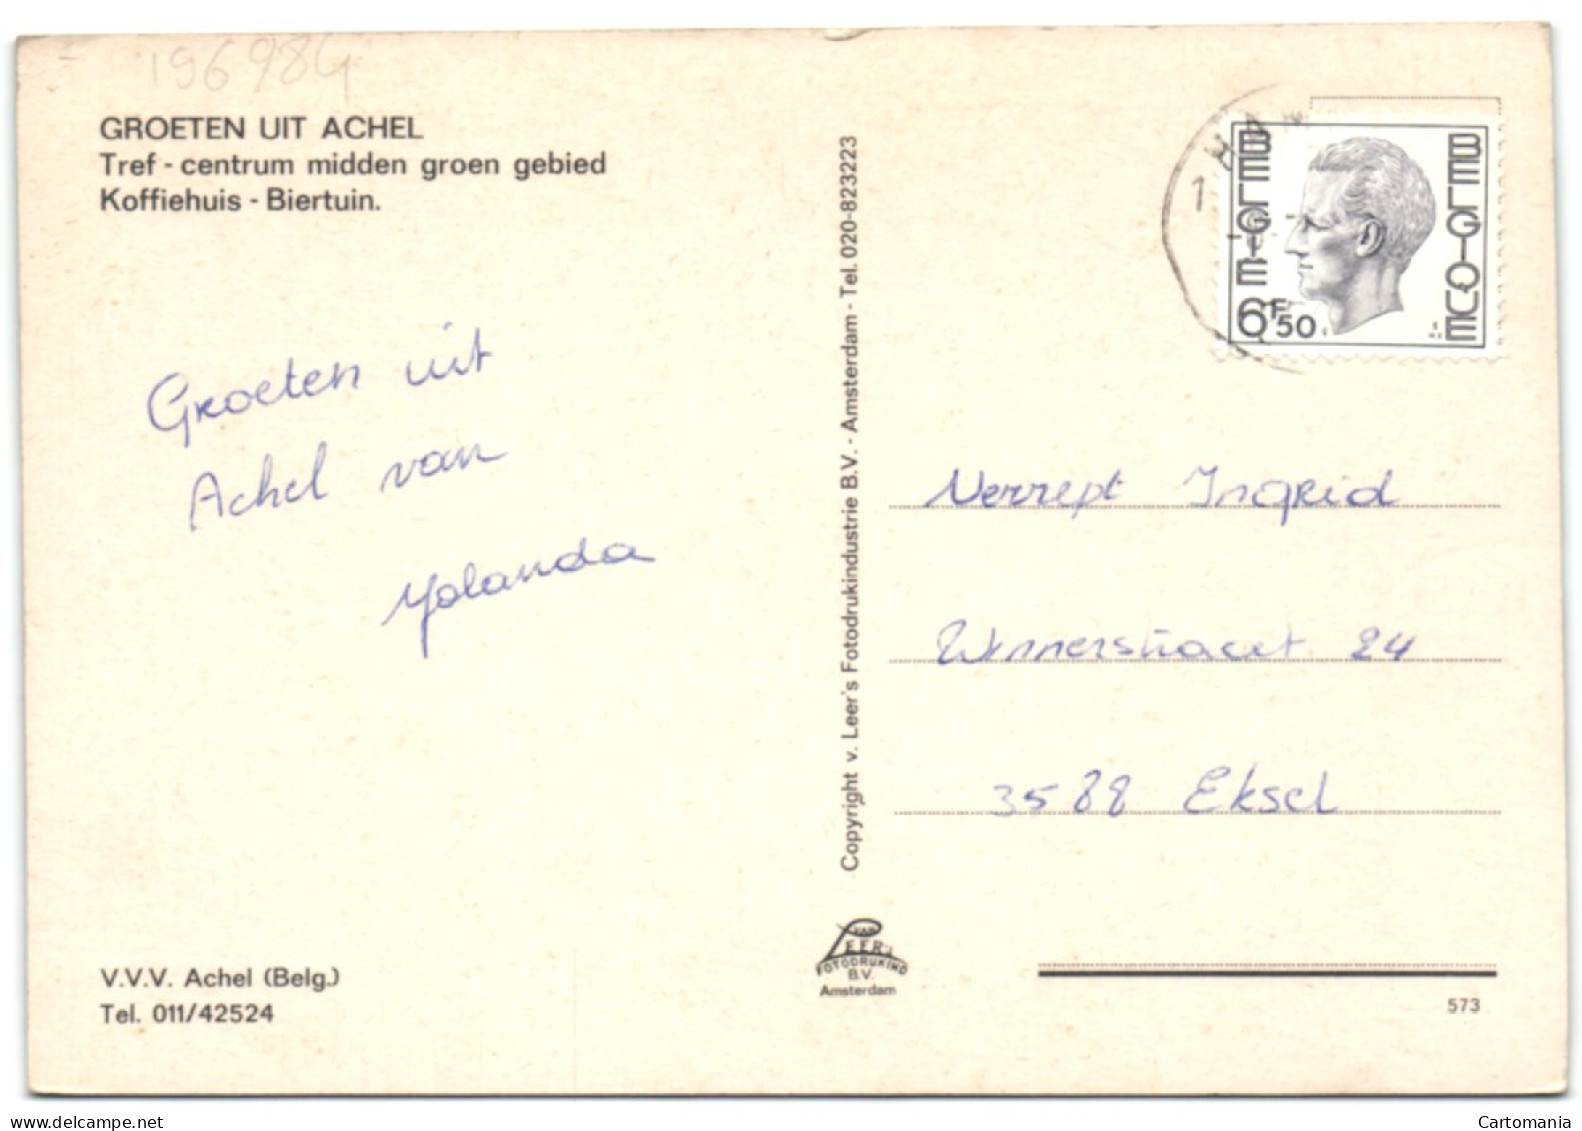 196984
GROETEN UIT ACHEL
Tref - centrum midden groen gebied
Koffiehuis - Biertuin.
Groeten uit
Achel van
Yolanda
V.V.V. Achel (Belg.)
Tel. 011/42524
Copyright v. Leer's Fotodrukindustrie B.V. - Amsterdam - Tel. 020-823223
VAN
LEER'S
FOTODRUKIND
B.V.
Amsterdam
BELGIE
BELGIQUE
6F50
Verrept Ingrid
24
3588 Eksel
573
www.delcampe.net
Cartomania